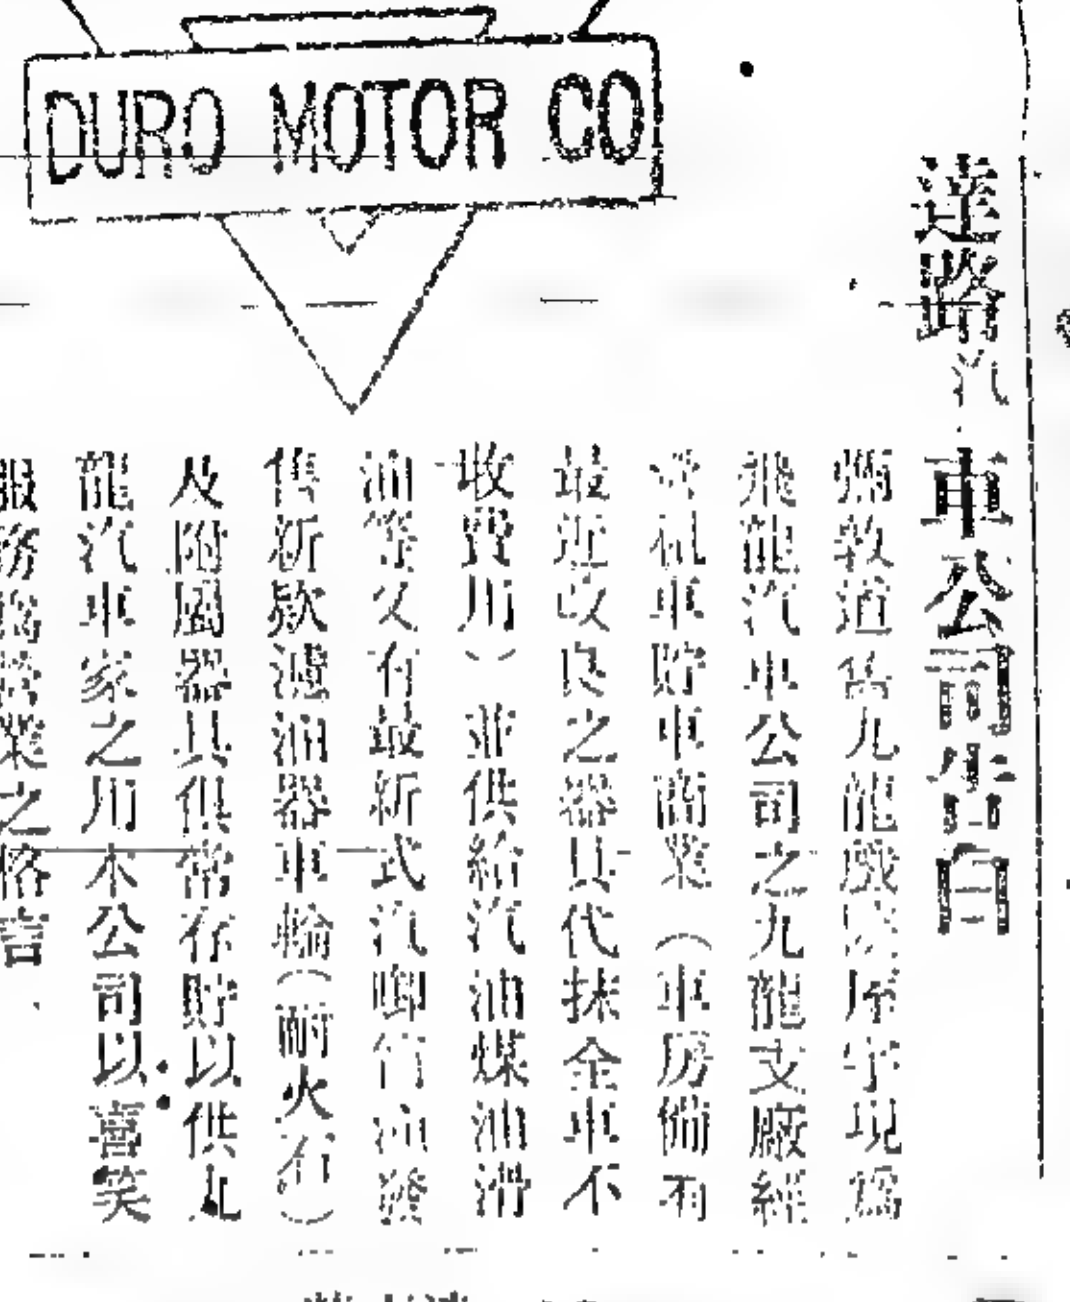 DURO MOTOR CO
達路汽車公司告白
彌敦道舊九龍戲院屋宇現為
飛龍汽車公司之九龍支廠經
營租車貯車商業（車房備有
最近改良之器具代抹全車不
收費用）並供給汽油煤油滑
油等又有最新式汽唧冇油發
售新欵濾油器車輪（耐火石）
及附屬器具俱常存貯以供九
龍汽車家之用本公司以喜笑
服務為營業之格言